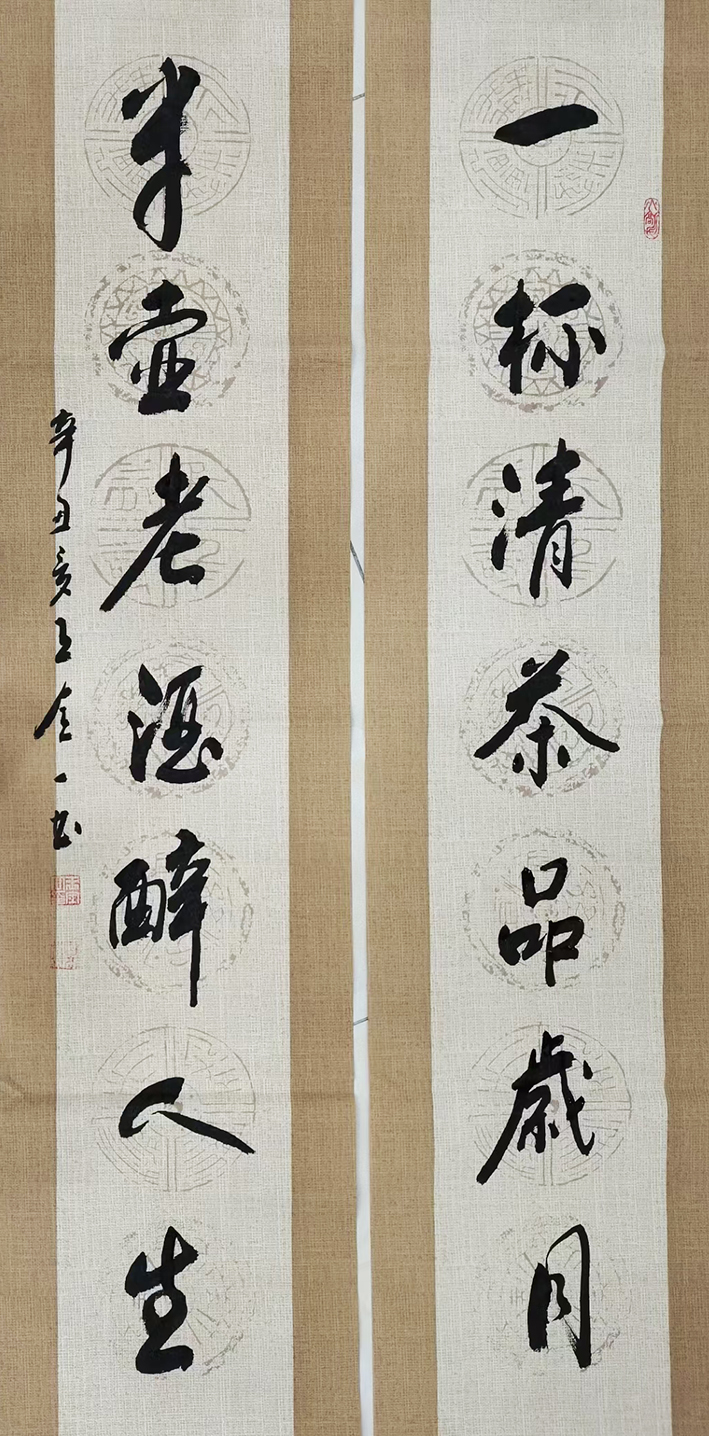 一杯清茶品歲月
半壺老酒醉人生
辛丑亥月金一书